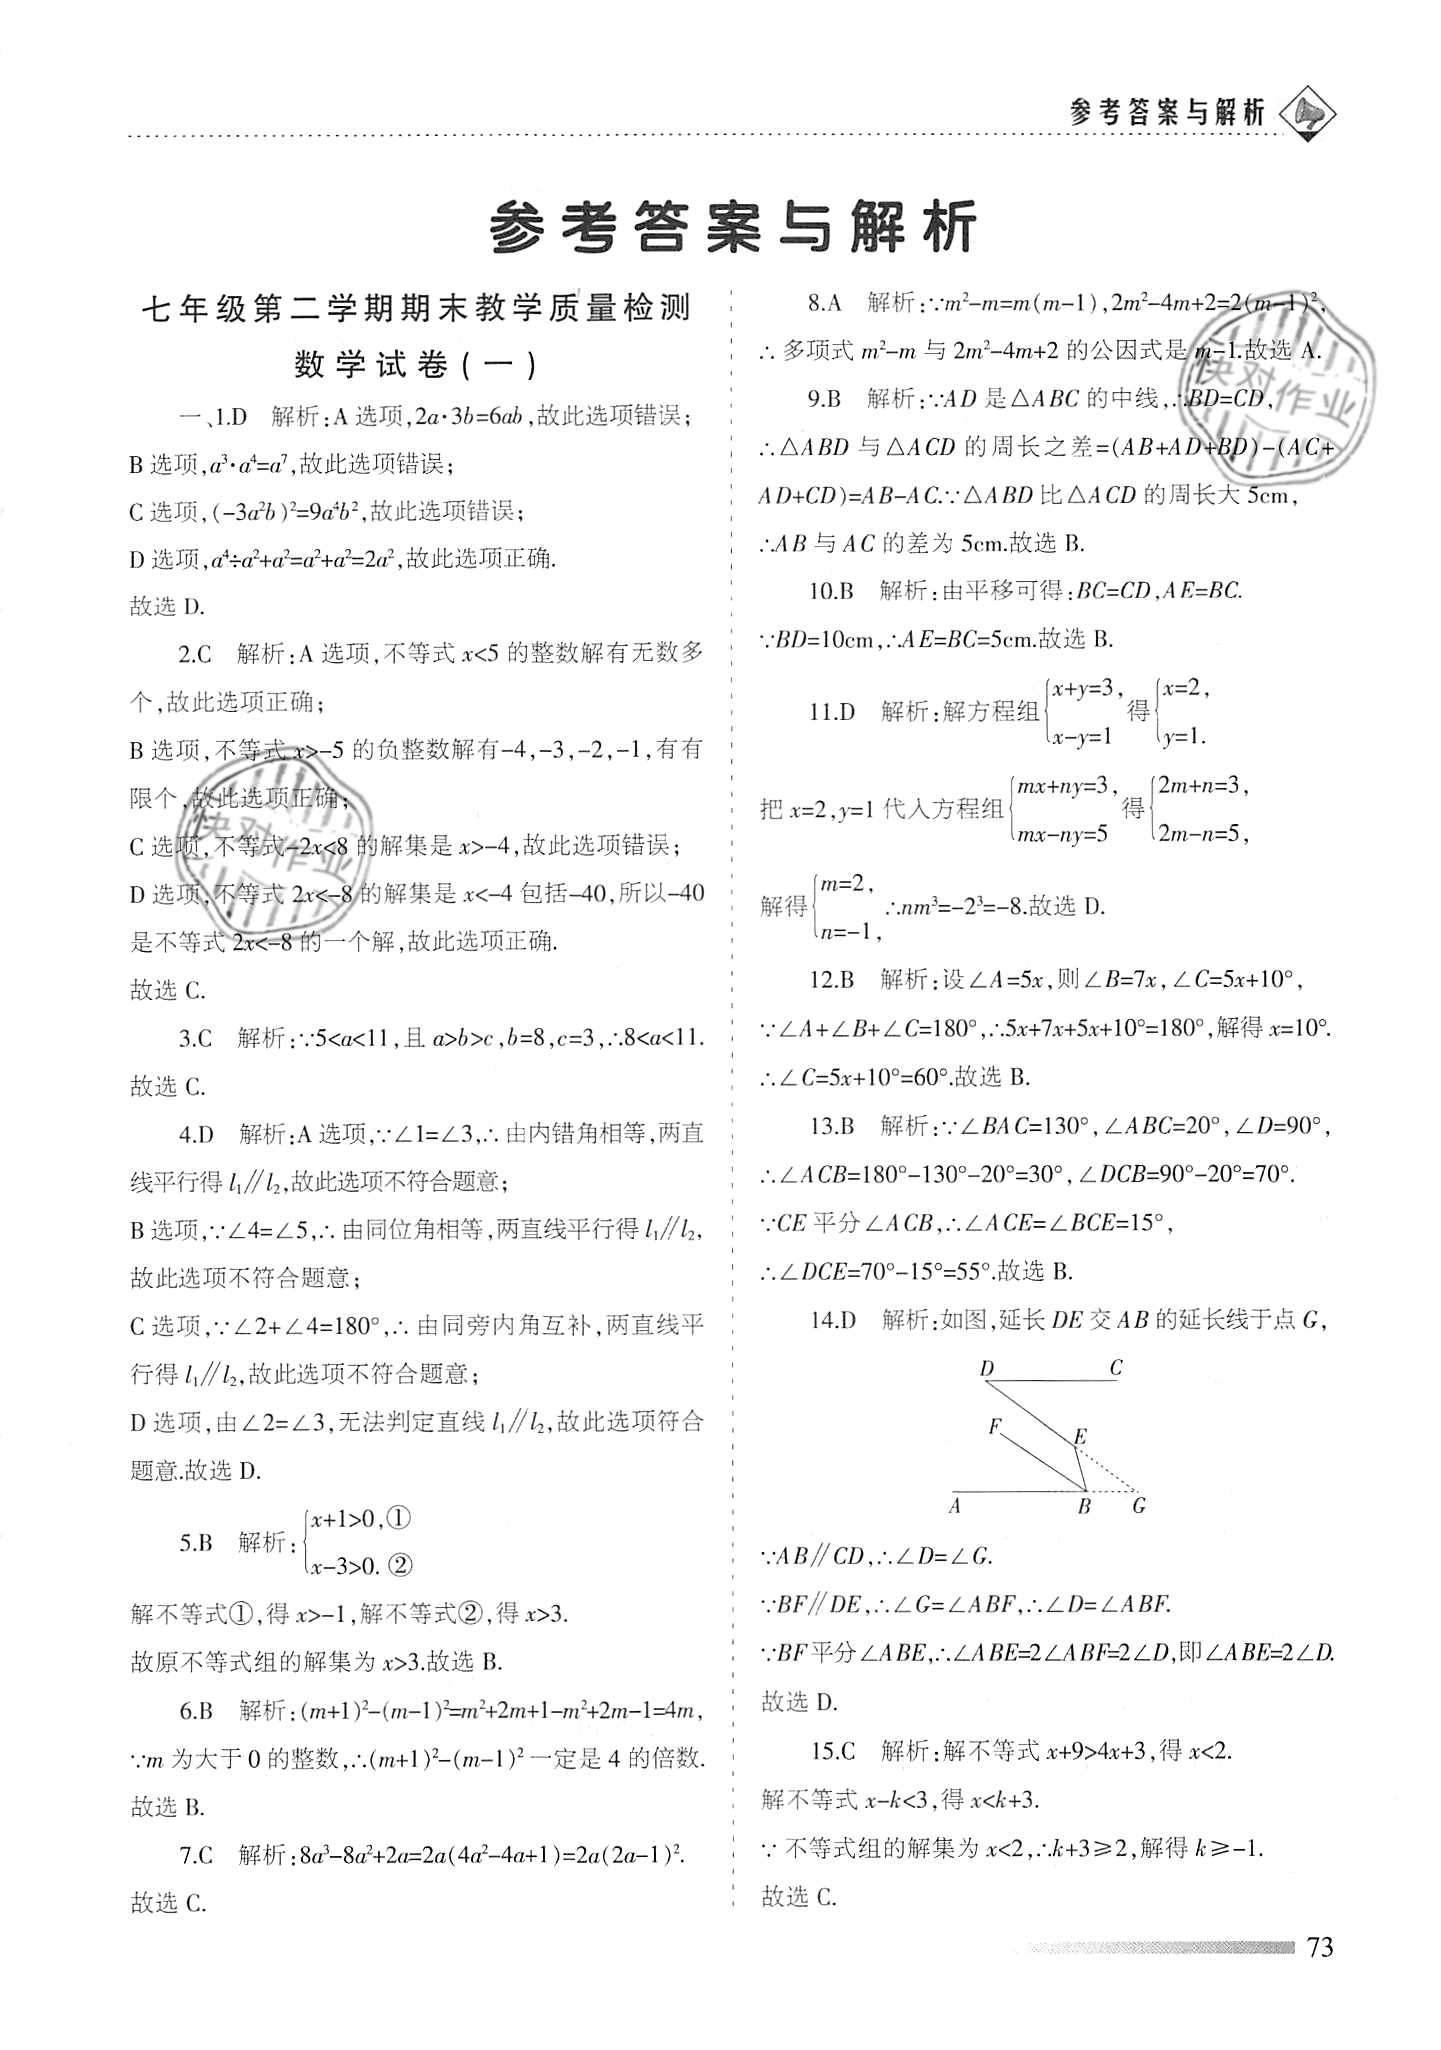 参考答案与解析
参考答案与解析
七年级第二学期期末教学质量检测
数学试卷(一)
一、1.D 解析:A选项,2a·3b=6ab,故此选项错误;
B选项,a³·a⁴=a⁷,故此选项错误;
C选项,(-3a²b)²=9a⁴b²,故此选项错误;
D选项,a⁴÷a²+a²=a²+a²=2a²,故此选项正确.
故选 D.
2.C 解析:A选项,不等式x<5的整数解有无数多
个,故此选项正确;
B选项,不等式x>-5的负整数解有-4,-3,-2,-1,有有
限个,故此选项正确;
C选项,不等式-2x<8的解集是x>-4,故此选项错误;
D选项,不等式2x<-8的解集是x<-4包括-40,所以-40
是不等式2x<-8的一个解,故此选项正确.
故选 C.
3.C 解析:∵5<a<11,且a>b>c,b=8,c=3,∴8<a<11.
故选 C.
4.D 解析:A选项,∵∠1=∠3,∴由内错角相等,两直
线平行得l₁∥l₂,故此选项不符合题意;
B选项,∵∠4=∠5,∴由同位角相等,两直线平行得l₁∥l₂,
故此选项不符合题意;
C选项,∵∠2+∠4=180°,∴由同旁内角互补,两直线平
行得l₁∥l₂,故此选项不符合题意;
D选项,由∠2=∠3,无法判定直线l₁∥l₂,故此选项符合
题意.故选 D.
5.B 解析:{x+1>0,①
x-3>0.②
解不等式①,得x>-1,解不等式②,得x>3.
故原不等式组的解集为x>3.故选 B.
6.B 解析:(m+1)²-(m-1)²=m²+2m+1-m²+2m-1=4m,
∵m为大于0的整数,∴(m+1)²-(m-1)²一定是4的倍数.
故选 B.
7.C 解析:8a³-8a²+2a=2a(4a²-4a+1)=2a(2a-1)².
故选 C.
8.A 解析:∵m²-m=m(m-1),2m²-4m+2=2(m-1)²,
∴多项式m²-m与2m²-4m+2的公因式是m-1.故选 A.
9.B 解析:∵AD是△ABC的中线,∴BD=CD,
∴△ABD与△ACD的周长之差=(AB+AD+BD)-(AC+
AD+CD)=AB-AC.∵△ABD比△ACD的周长大5cm,
∴AB与AC的差为5cm.故选 B.
10.B 解析:由平移可得:BC=CD,AE=BC.
∵BD=10cm,∴AE=BC=5cm.故选 B.
11.D 解析:解方程组{x+y=3, x-y=1 得{x=2, y=1.
把x=2,y=1代入方程组{mx+ny=3, mx-ny=5 得{2m+n=3, 2m-n=5,
解得{m=2, n=-1, ∴nm³=-2³=-8.故选 D.
12.B 解析:设∠A=5x,则∠B=7x,∠C=5x+10°,
∵∠A+∠B+∠C=180°,∴5x+7x+5x+10°=180°,解得x=10°.
∴∠C=5x+10°=60°.故选 B.
13.B 解析:∵∠BAC=130°,∠ABC=20°,∠D=90°,
∴∠ACB=180°-130°-20°=30°,∠DCB=90°-20°=70°.
∵CE平分∠ACB,∴∠ACE=∠BCE=15°,
∴∠DCE=70°-15°=55°.故选 B.
14.D 解析:如图,延长DE交AB的延长线于点G,
D C
F E
A B G
∵AB∥CD,∴∠D=∠G.
∵BF∥DE,∴∠G=∠ABF,∴∠D=∠ABF.
∵BF平分∠ABE,∴∠ABE=2∠ABF=2∠D,即∠ABE=2∠D.
故选 D.
15.C 解析:解不等式x+9>4x+3,得x<2.
解不等式x-k<3,得x<k+3.
∵不等式组的解集为x<2,∴k+3≥2,解得k≥-1.
故选 C.
73
快对作业
快对作业